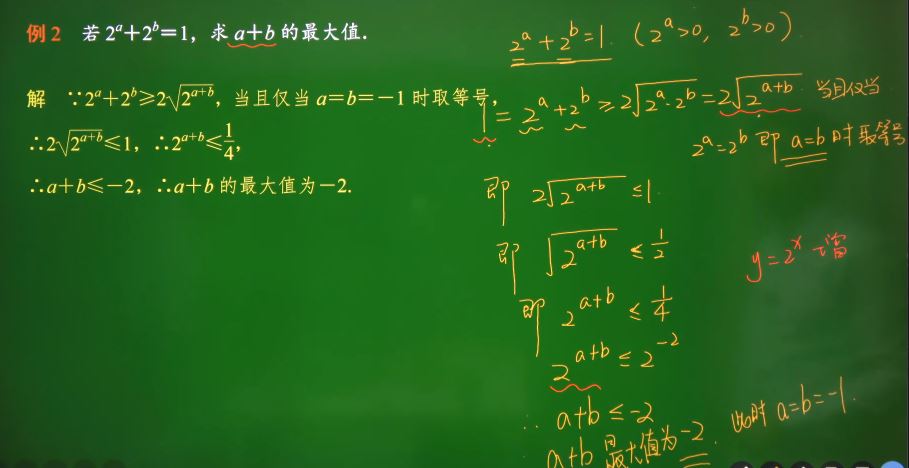 例2 若2ᵃ+2ᵇ=1，求a+b的最大值.
解 ∵2ᵃ+2ᵇ≥2√(2ᵃ⁺ᵇ)，当且仅当a=b=-1时取等号，
∴2√(2ᵃ⁺ᵇ)≤1，∴2ᵃ⁺ᵇ≤1/4，
∴a+b≤-2，∴a+b的最大值为-2.
2ᵃ+2ᵇ=1. (2ᵃ>0, 2ᵇ>0).
1=2ᵃ+2ᵇ≥2√(2ᵃ·2ᵇ)=2√(2ᵃ⁺ᵇ) 当且仅当
2ᵃ=2ᵇ 即a=b时取等号
即 2√(2ᵃ⁺ᵇ)≤1.
即 √(2ᵃ⁺ᵇ)≤1/2
y=2ˣ
即 2ᵃ⁺ᵇ≤1/4
2ᵃ⁺ᵇ≤2⁻²
∴ a+b≤-2
a+b最大值为-2. 此时a=b=-1.